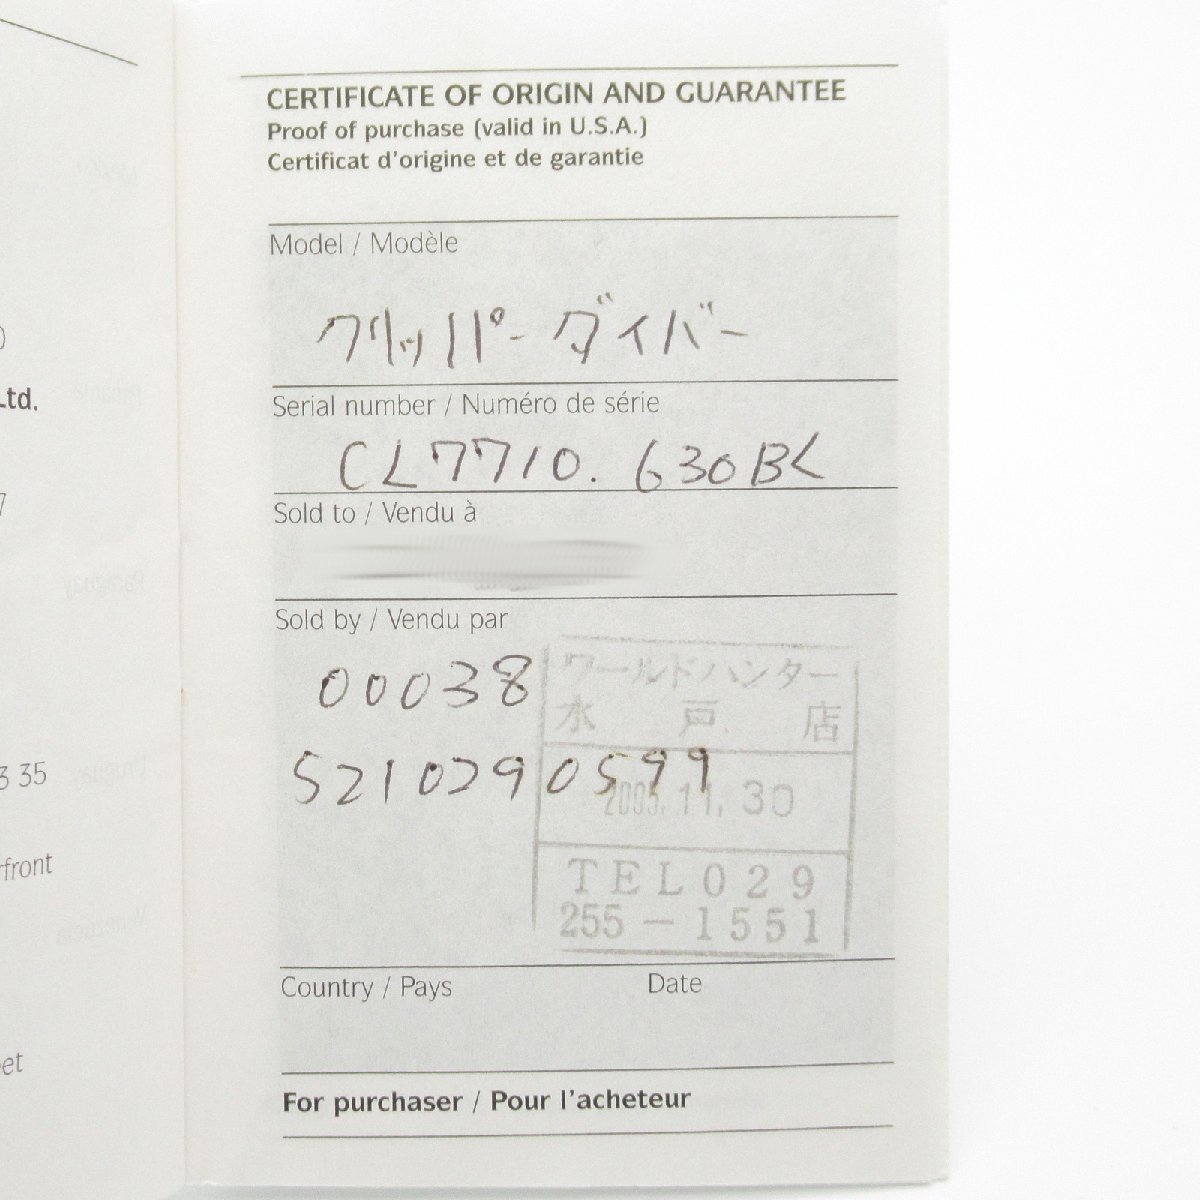 CERTIFICATE OF ORIGIN AND GUARANTEE
Proof of purchase (valid in U.S.A.)
Certificat d'origine et de garantie
Model / Modèle
クリッパーダイバー
Serial number / Numéro de série
CL7710. 630BL
Sold to / Vendu à
Sold by / Vendu par
00038
5210290599
ワールドハンター
水戸店
2005.11.30
TEL029
255-1551
Country / Pays
Date
For purchaser / Pour l'acheteur
Ltd.
3 35
front
et